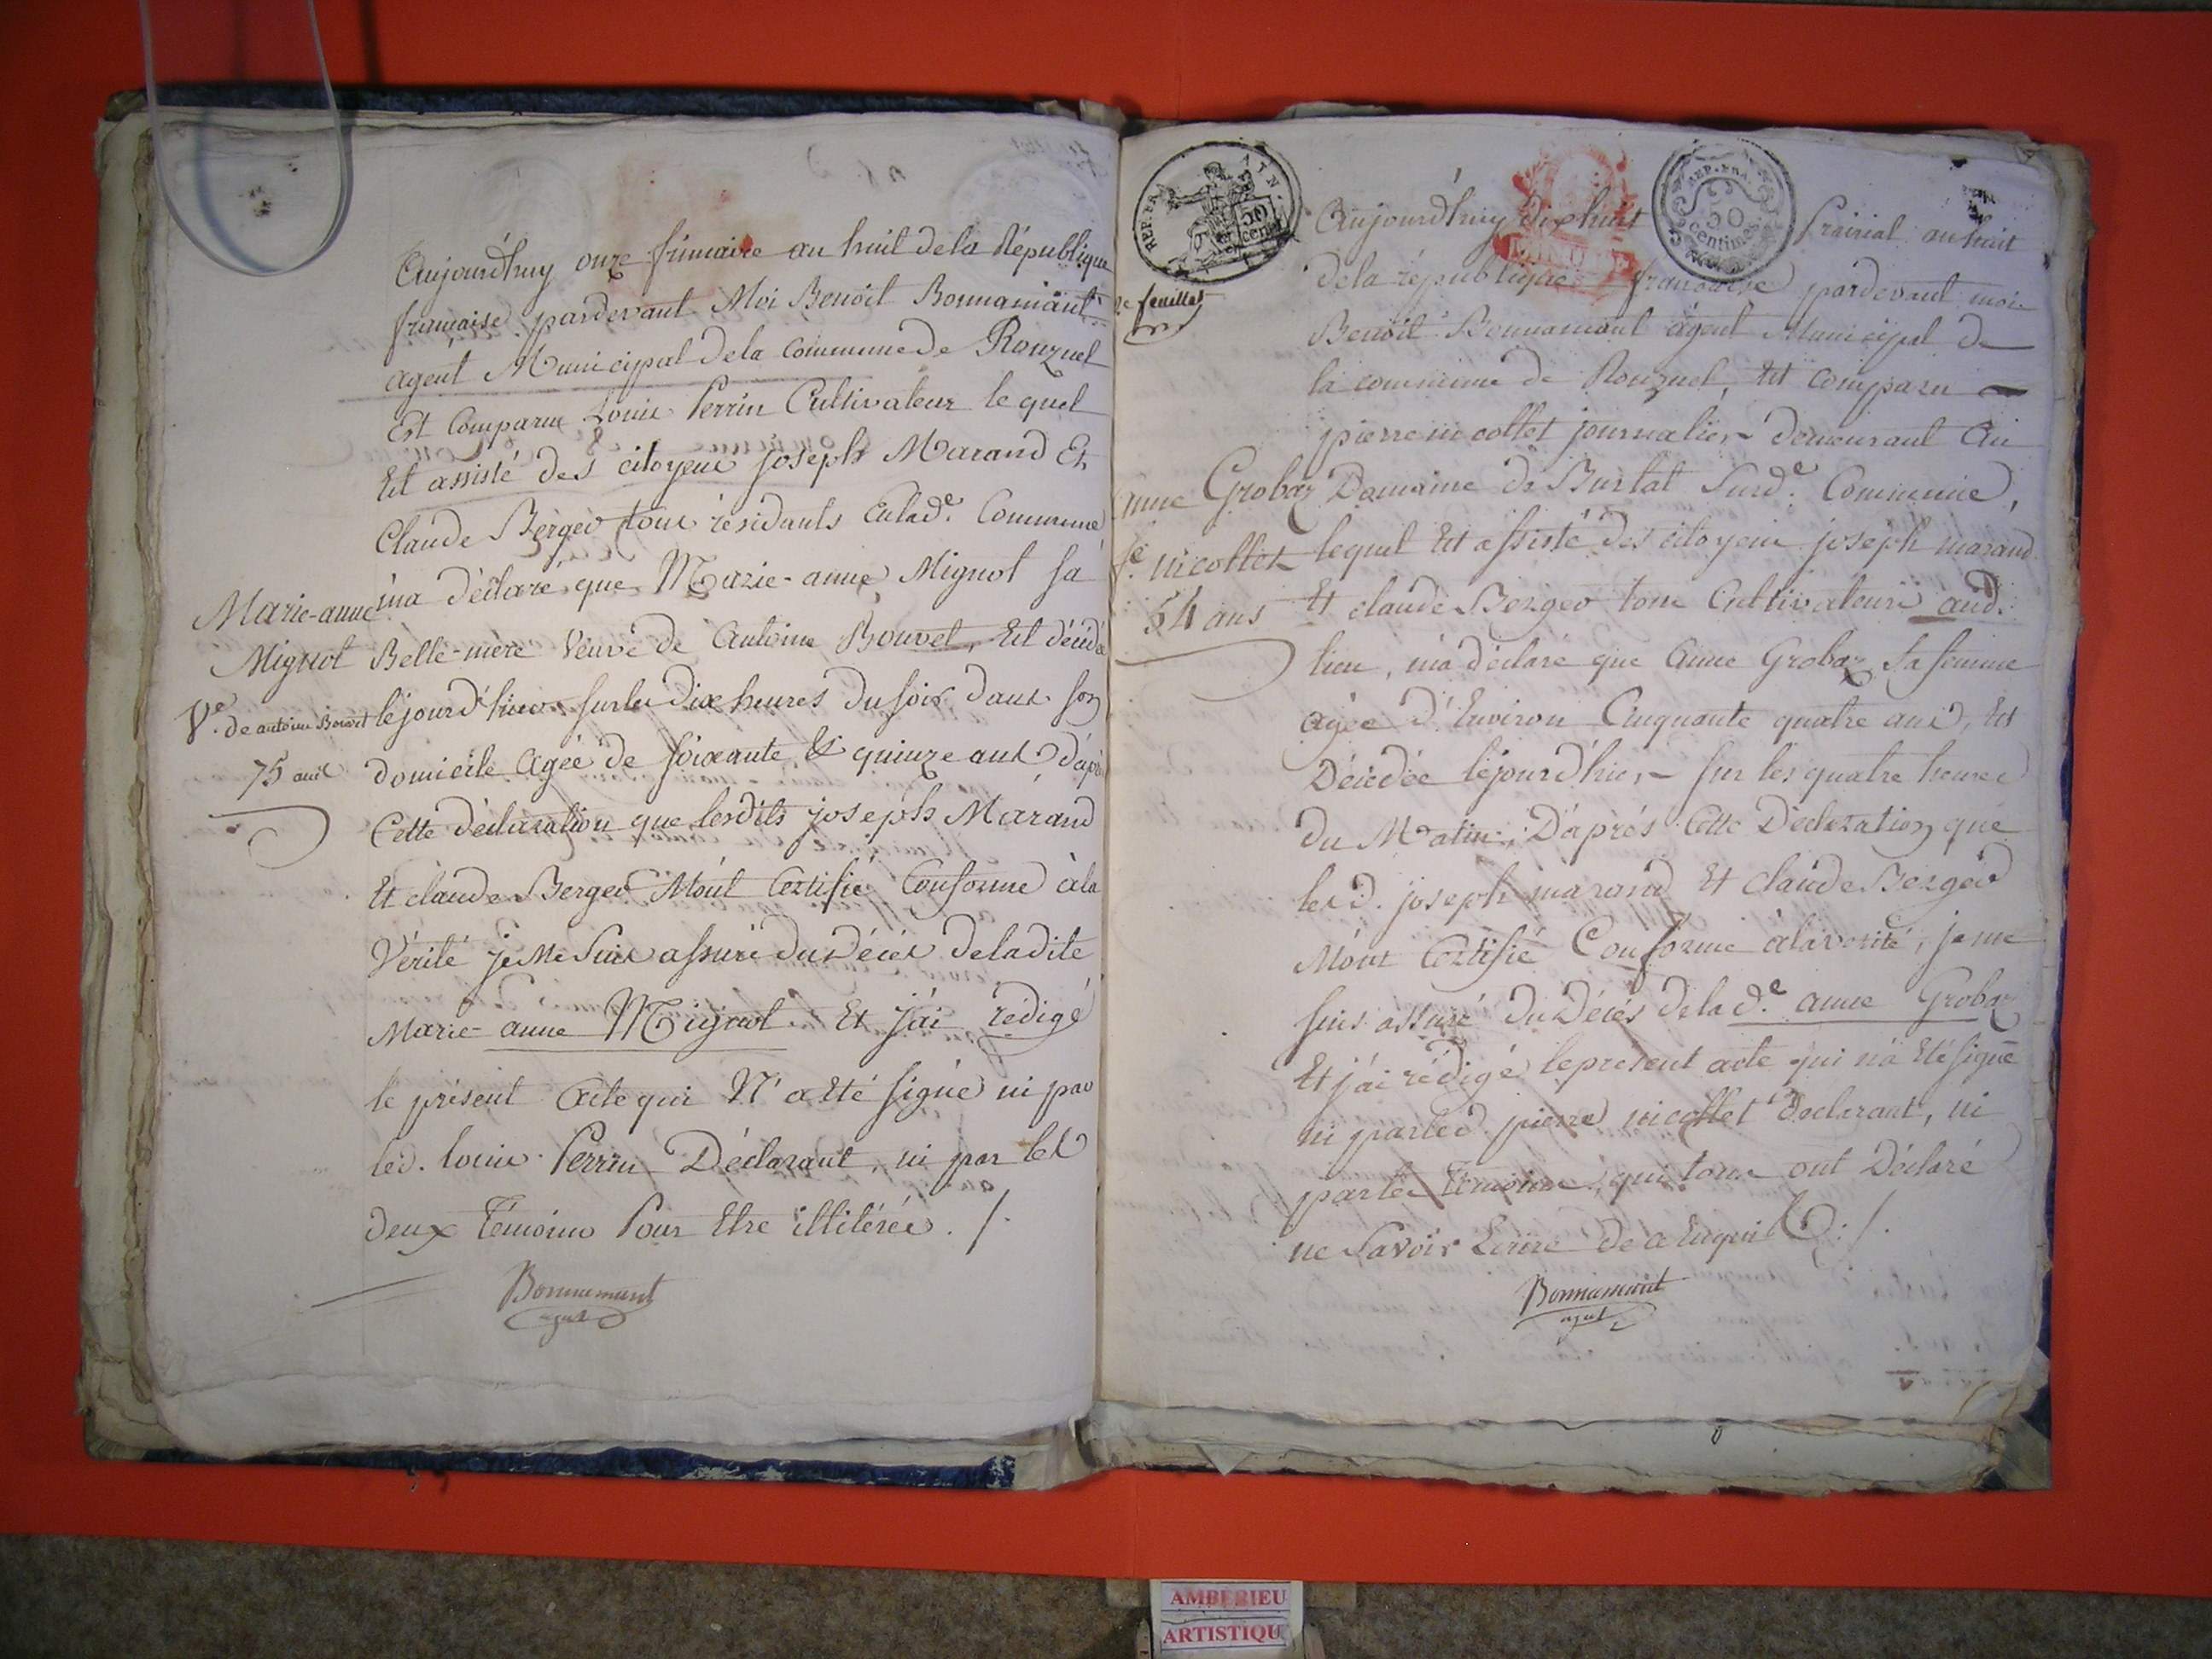 Aujourd'huy onze frimaire an huit de la République
française pardevant Moi Benoit Bonnamant
agent Municipal dela Commune de Ronzuel
Est Comparu Louis Perrin Cultivateur le quel
Est assisté des citoyens joseph Marand Et
Claude Berger tous résidants En lad.e Commune
m'a déclaré que Marie-anne Mignot sa
Belle-mère Veuve de Antoine Bouvet, Est décédé
lejourd'hier sur les dix heures du soir dans son
domicile agée de soixante & quinze ans d'après
Cette déclaration que lesdits joseph Marand
Et claude Berger M'ont Certifié Conforme à la
Vérité je Me Suis assuré du Décès deladite
Marie-anne Mignot Et j'ai rédigé
le présent Acte qui N'a Eté signé ni par
led. louis Perrin Déclarant, ni par les
deux Témoins Pour Etre illitérés ./.
Bonnamant
agent
Marie-anne
Mignot
V.e de antoine Bouvet
75 ans
REP. FRA.
AIN.
50
cent
REP. FRA.
50
centimes
feuillet
Aujourd'huy dix huit Prairial an huit
dela république française pardevant moi
Benoit Bonnamant agent Municipal de
la commune de Ronzuel, Est Comparu
pierre nicollet journalier demeurant Au
Domaine de Burlat Surd.e Commune,
lequel Est assisté des citoyens joseph marand
Et claude Berger tous Cultivateurs aud.
lieu, m'a déclaré que Anne Grobaz Sa femme
agée d'Environ Cinquante quatre ans, Est
Décédée lejourd'hier sur les quatre heures
du Matin, D'après Cette Déclaration que
lesd. joseph marand Et Claude Berger
M'ont Certifié Conforme àlavérité, je me
suis assuré du Décès delad.e anne Grobaz
Et j'ai rédigé leprésent acte qui n'a Eté signé
ni parled. pierre nicollet Déclarant, ni
parles Témoins, qui tous ont Déclaré
ne Savoir Ecrire de ce Enquis ./.
Bonnamant
agent
anne Grobaz
f.e nicollet
54 ans
AMBERIEU
ARTISTIQU